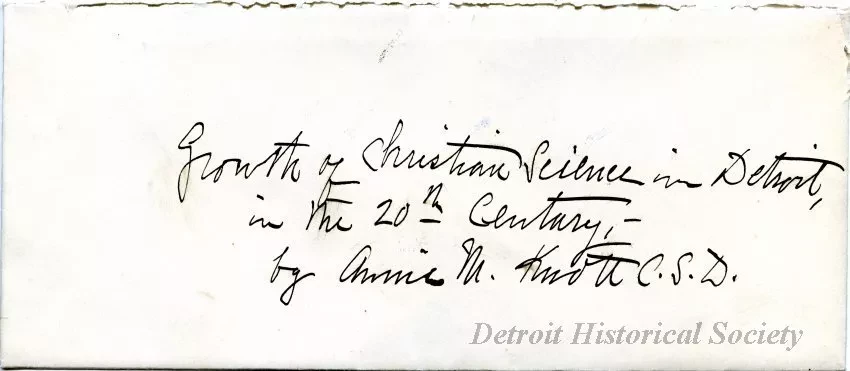 Growth of Christian Science in Detroit,
in the 20th Century,-
by Annie M. Knott C.S.D.
Detroit Historical Society